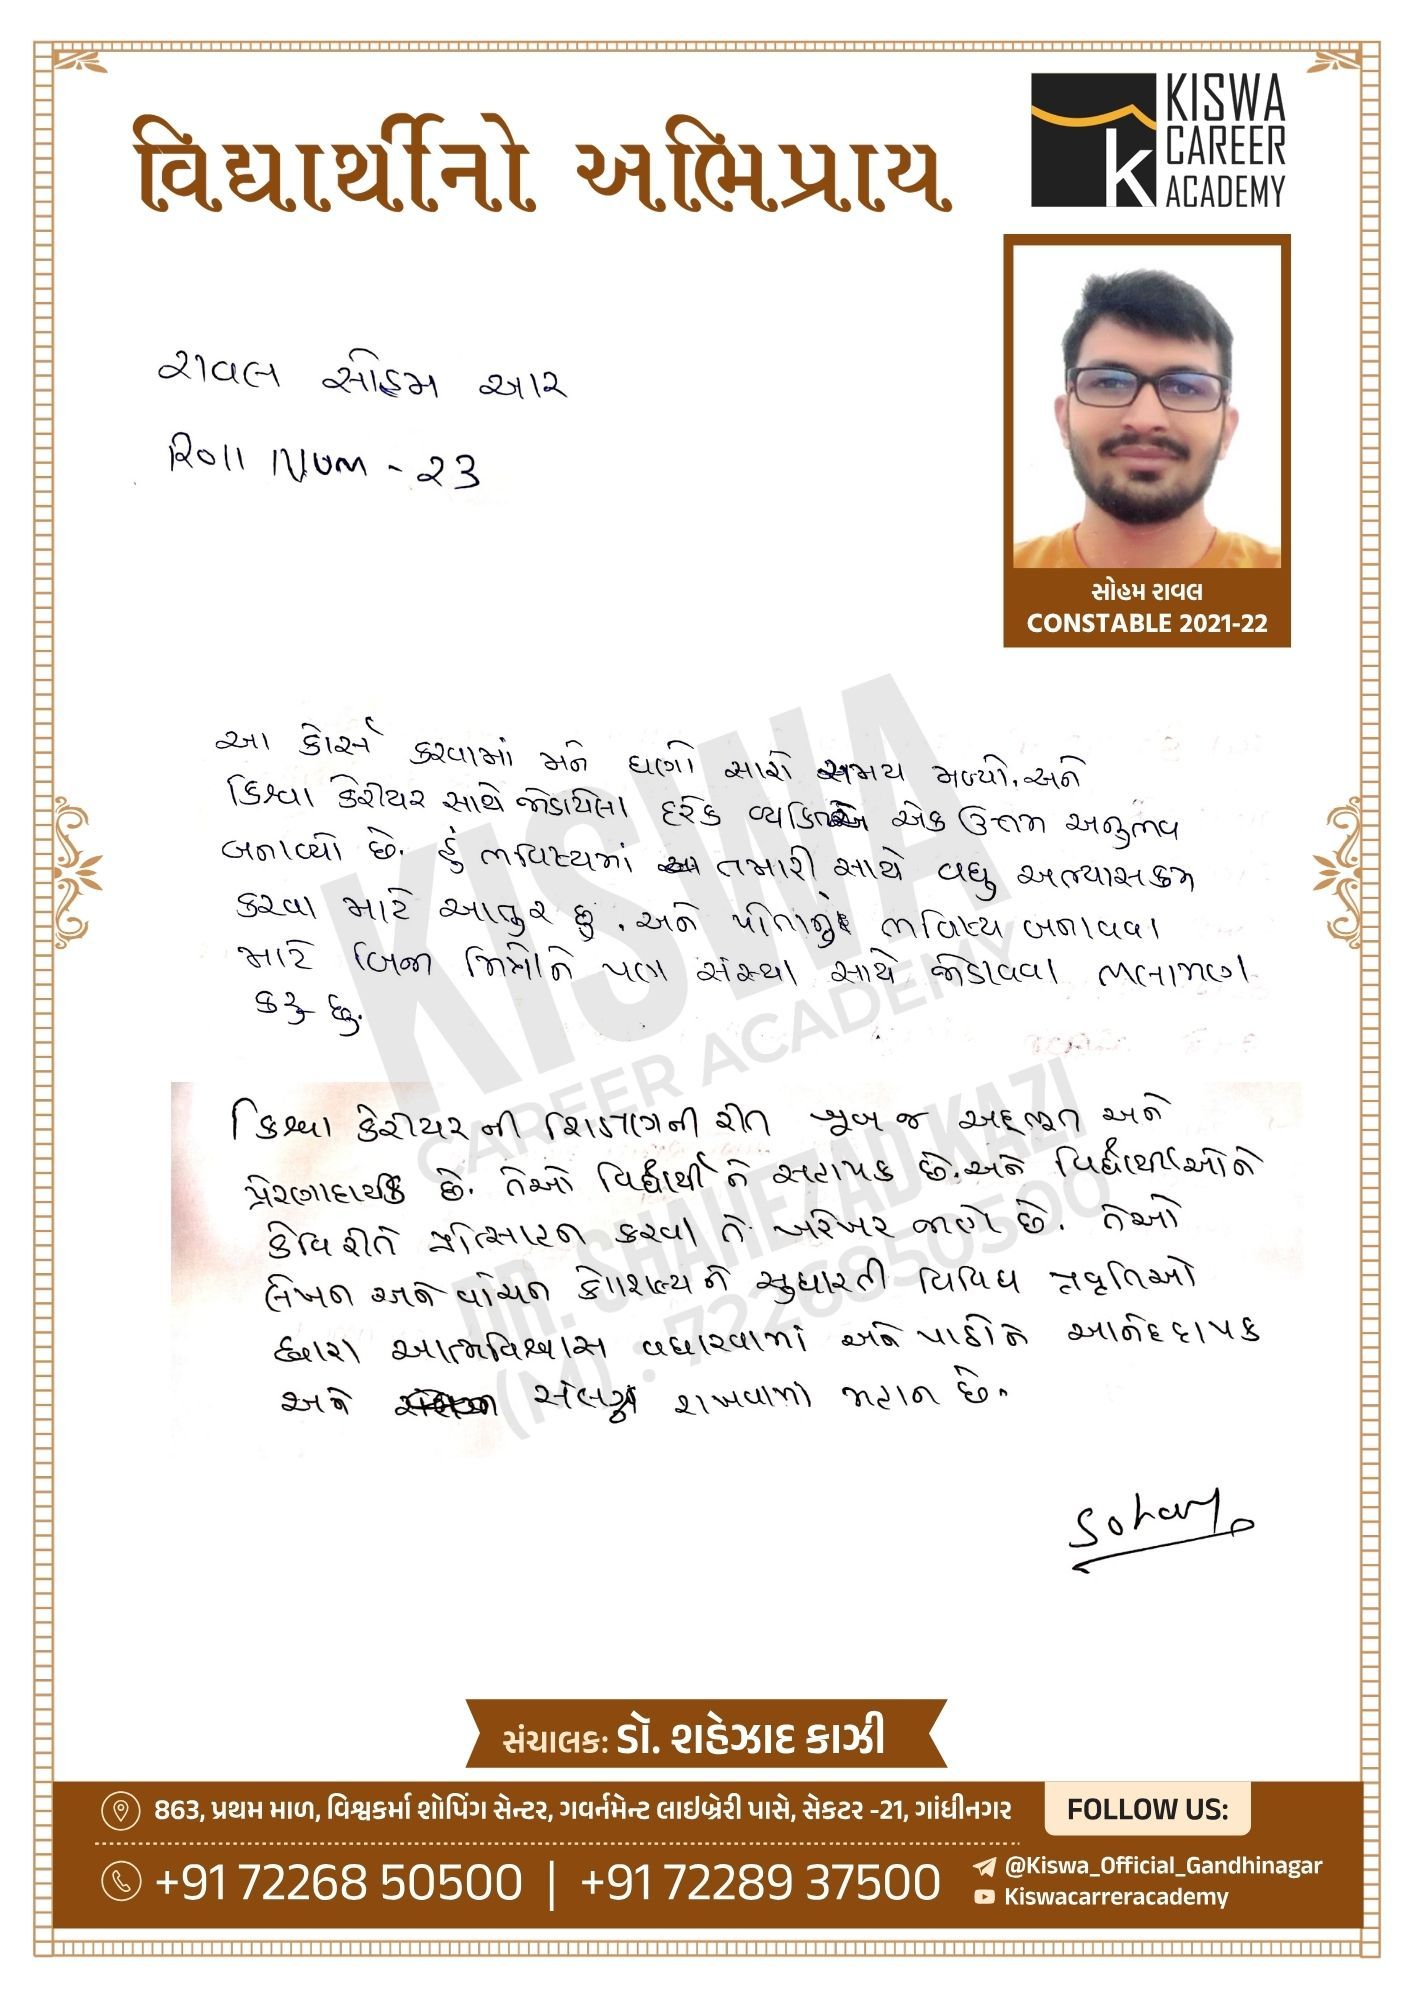 વિદ્યાર્થીનો અભિપ્રાય
KISWA
CAREER
ACADEMY
રાવલ સોહમ આર
Roll Num - 23
સોહમ રાવલ
CONSTABLE 2021-22
આ કોર્સ કરવામાં મને ઘણો સારો સમય મળ્યો. અને
કિશ્વા કેરીયર સાથે જોડાયેલા દરેક વ્યક્તિએ એક ઉત્તમ અનુભવ
બનાવ્યો છે. હું ભવિષ્યમાં તમારી સાથે વધુ અભ્યાસક્રમ
કરવા માટે આતુર છું. અને પોતાનું ભવિષ્ય બનાવવા
માટે બિજા મિત્રોને પણ સંસ્થા સાથે જોડાવવા ભલામણ
કરું છું.
કિશ્વા કેરીયર ની શિક્ષણની રીત ખુબ જ અદ્ભૂત અને
પ્રેરણાદાયક છે. તેઓ વિદ્યાર્થી ને સહાયક છે. અને વિદ્યાર્થીઓને
કેવિ રીતે પ્રોત્સાહન કરવા તે ખરેખર જાણે છે. તેઓ
લેખન અને વાંચન કૌશલ્ય ને સુધારતી વિવિધ પ્રવૃતિઓ
દ્વારા આત્મવિશ્વાસ વધારવામાં અને પાઠોને આનંદદાયક
અને સંલગ્ન રાખવામાં મહાન છે.
Soham
KISWA
CAREER ACADEMY
DR. SHAHEZAD KAZI
(M) : 7226850500
સંચાલક: ડૉ. શહેઝાદ કાઝી
863, પ્રથમ માળ, વિશ્વકર્મા શોપિંગ સેન્ટર, ગવર્નમેન્ટ લાઇબ્રેરી પાસે, સેકટર -21, ગાંધીનગર
FOLLOW US:
+91 72268 50500 | +91 72289 37500
@Kiswa_Official_Gandhinagar
Kiswacarreracademy